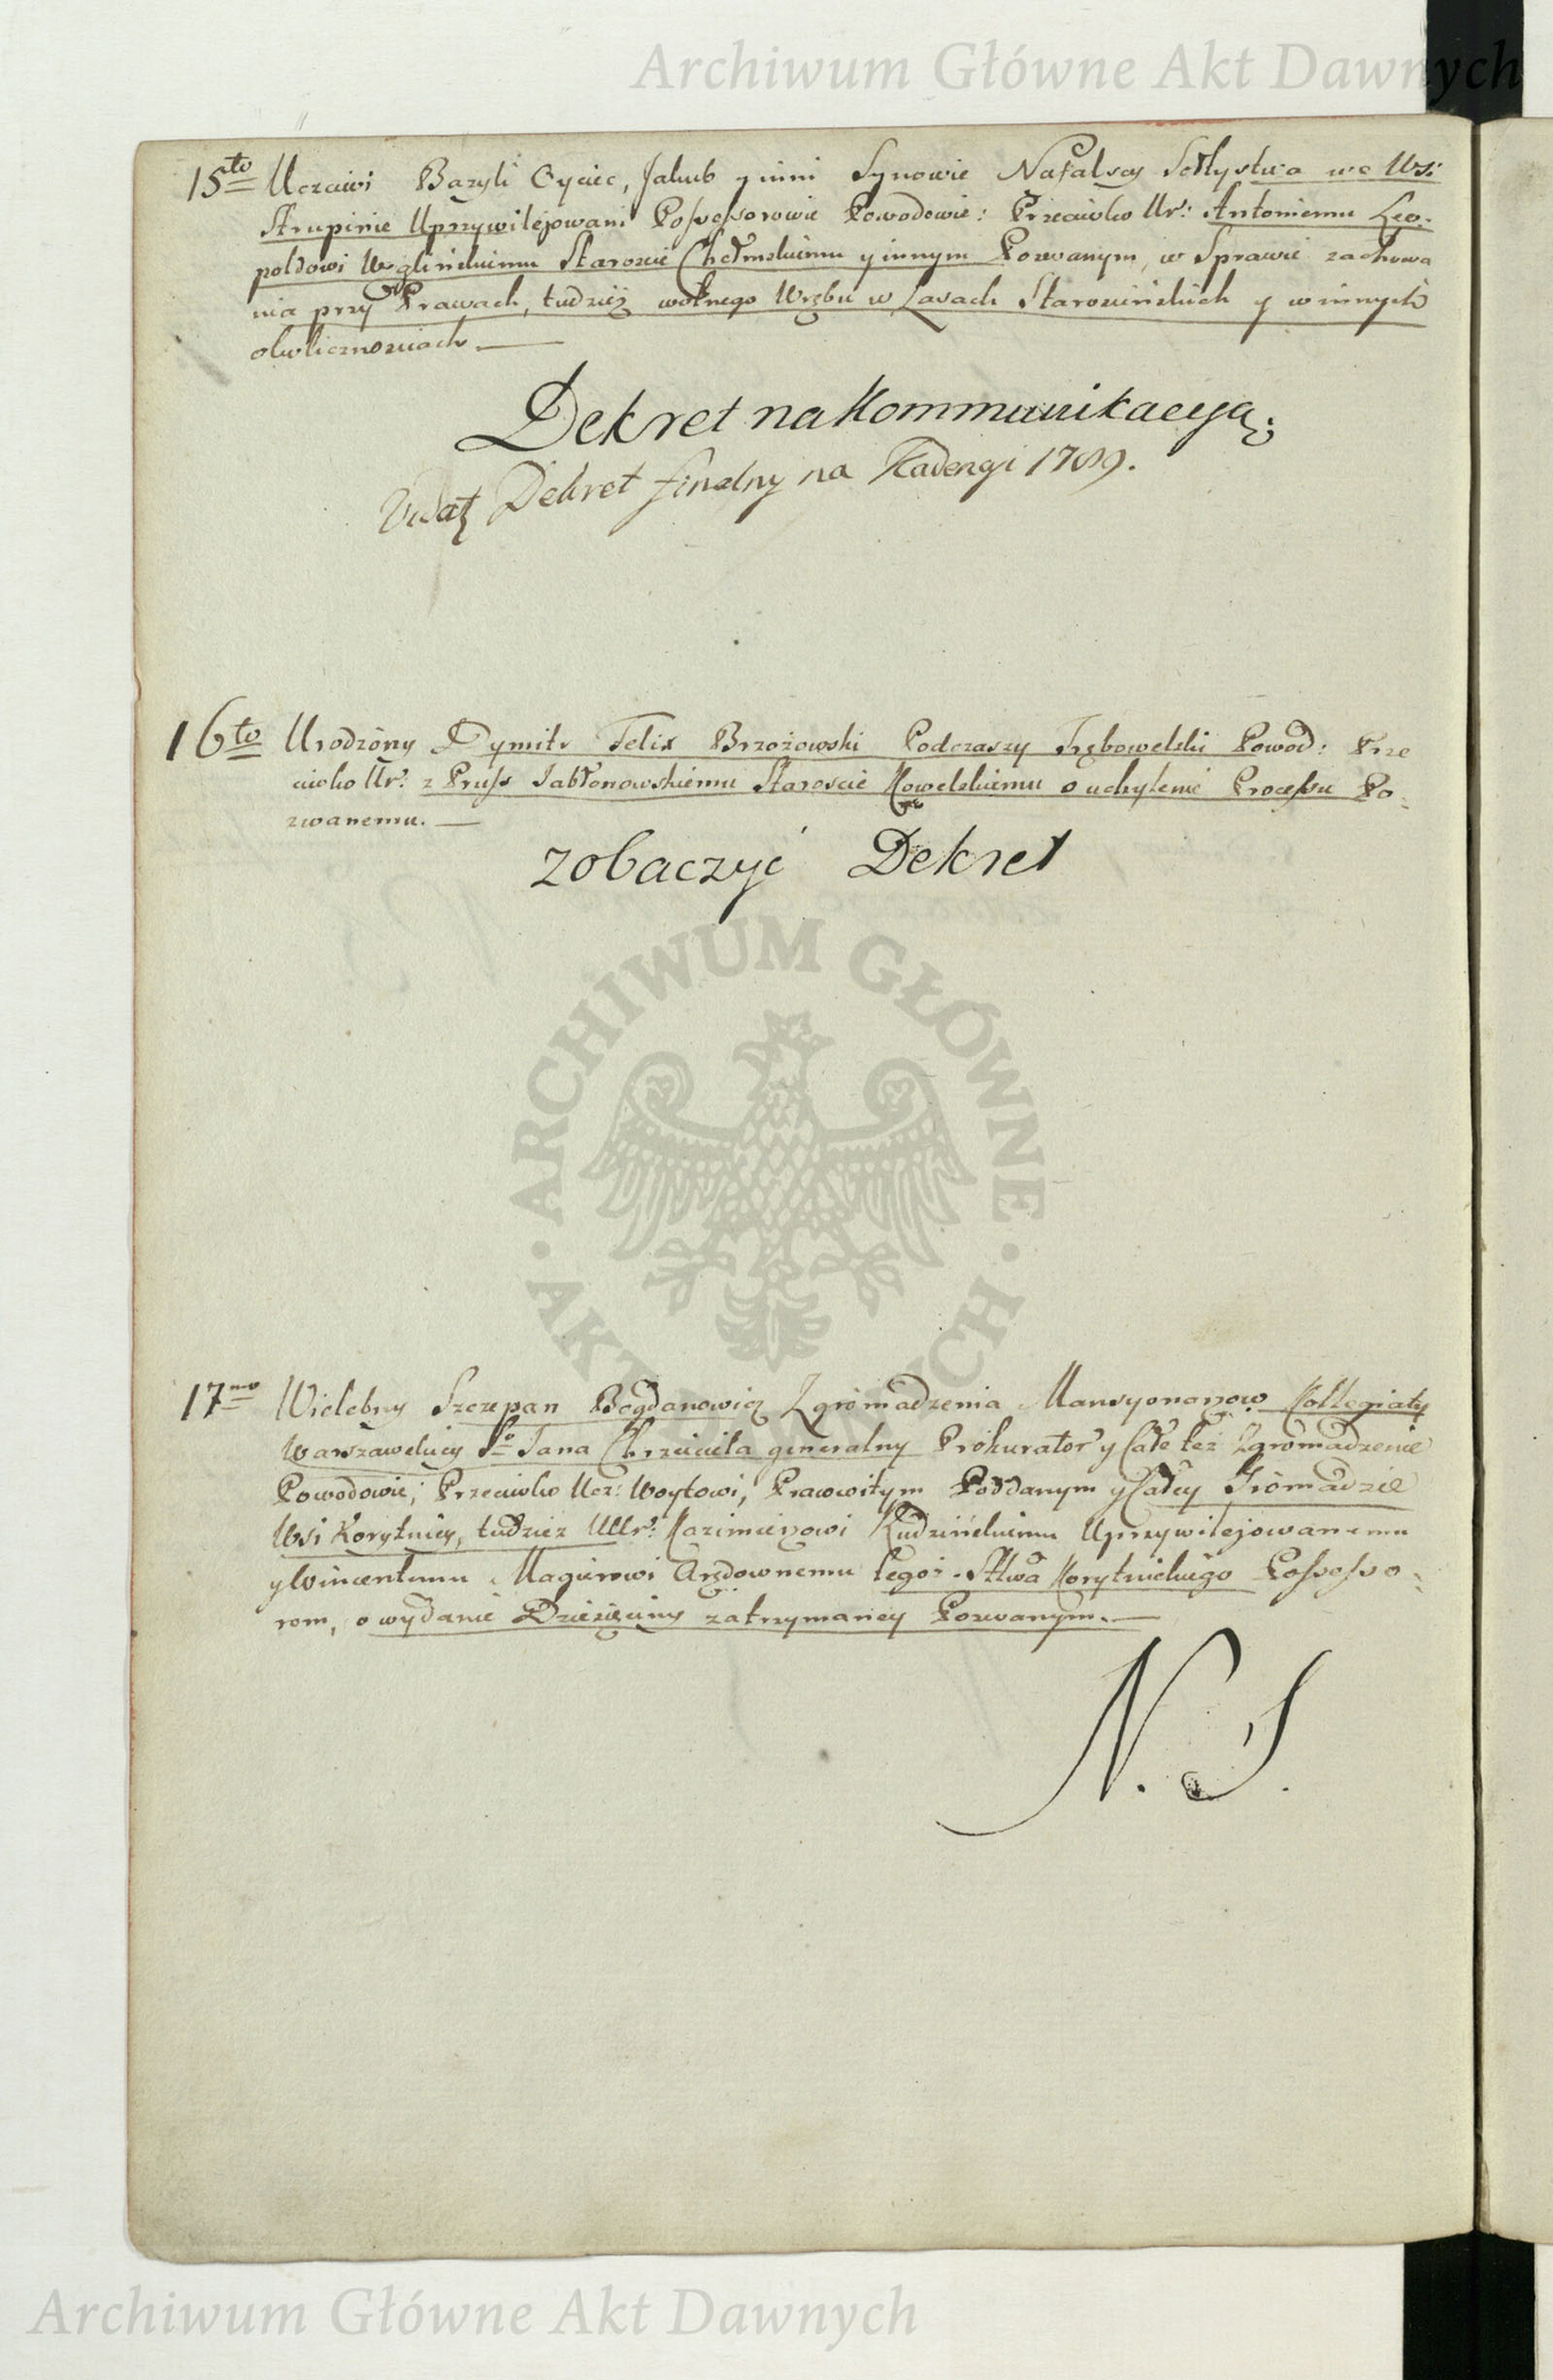 Archiwum Główne Akt Dawnych
15to Uczciwi Bazyli Oyciec, Jakub y inni Synowie Nafalscy Sołtystwa we Wsi
Strupinie Uprzywilejowani Possessorowie Powodowie: Przeciwko Ur: Antoniemu Leo-
poldowi Węglińskiemu Staroscie Chełmskiemu y innym Pozwanym, w Sprawie zachowa
nia przy Prawach, tudzież wolnego Wrębu w Lasach Starościńskich y w innych
okolicznosciach. —
Dekret na Kommunikacyą.
Vidat Dekret finalny na Kadencyi 1789.
16to Urodzony Dymitr Felix Brzozowski Podczaszy Trębowelski Powod: Prze
ciwko Ur: z Pruss Jabłonowskiemu Staroscie Kowelskiemu o uchylenie Processu Po-
zwanemu. —
zobaczyć Dekret
ARCHIWUM GŁÓWNE · AKT DAWNYCH ·
17mo Wielebny Szczepan Bogdanowicz Zgromadzenia Mansyonarzow Kollegiaty
Warszawskiey So Jana Chrzciciela generalny Prokurator y Całe też Zgromadzenie
Powodowie; Przeciwko Ucz: Woytowi, Prawowitym Poddanym y Całey Gromadzie
Wsi Korytnicy, tudziez UUr: Kazimierzowi Rudzińskiemu Uprzywilejowanemu
y Wincentemu Magierowi Arędownemu tegoż Sttwa Korytnickiego Possesso-
rom, o wydanie Dziesięciny zatrzymaney Pozwanym. —
N. S.
Archiwum Główne Akt Dawnych